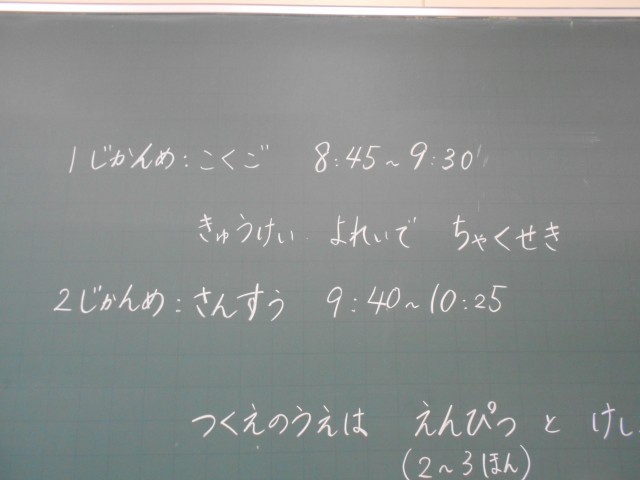 1じかんめ:こくご 8:45~9:30
きゅうけい よれいで ちゃくせき
2じかんめ:さんすう 9:40~10:25
つくえのうえは えんぴつ と けし
(2~3ほん)